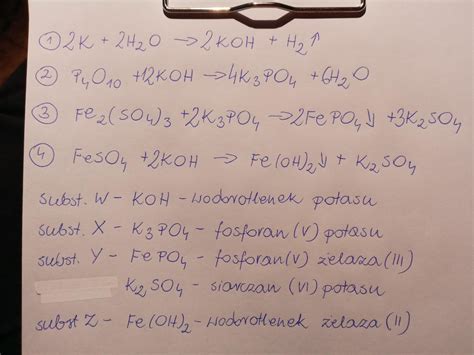 ① 2K + 2H₂O → 2KOH + H₂↑
② P₄O₁₀ + 12KOH → 4K₃PO₄ + 6H₂O
③ Fe₂(SO₄)₃ + 2K₃PO₄ → 2FePO₄↓ + 3K₂SO₄
④ FeSO₄ + 2KOH → Fe(OH)₂↓ + K₂SO₄
subst. W - KOH - wodorotlenek potasu
subst. X - K₃PO₄ - fosforan (V) potasu
subst. Y - FePO₄ - fosforan (V) żelaza (III)
K₂SO₄ - siarczan (VI) potasu
subst Z - Fe(OH)₂ - wodorotlenek żelaza (II)